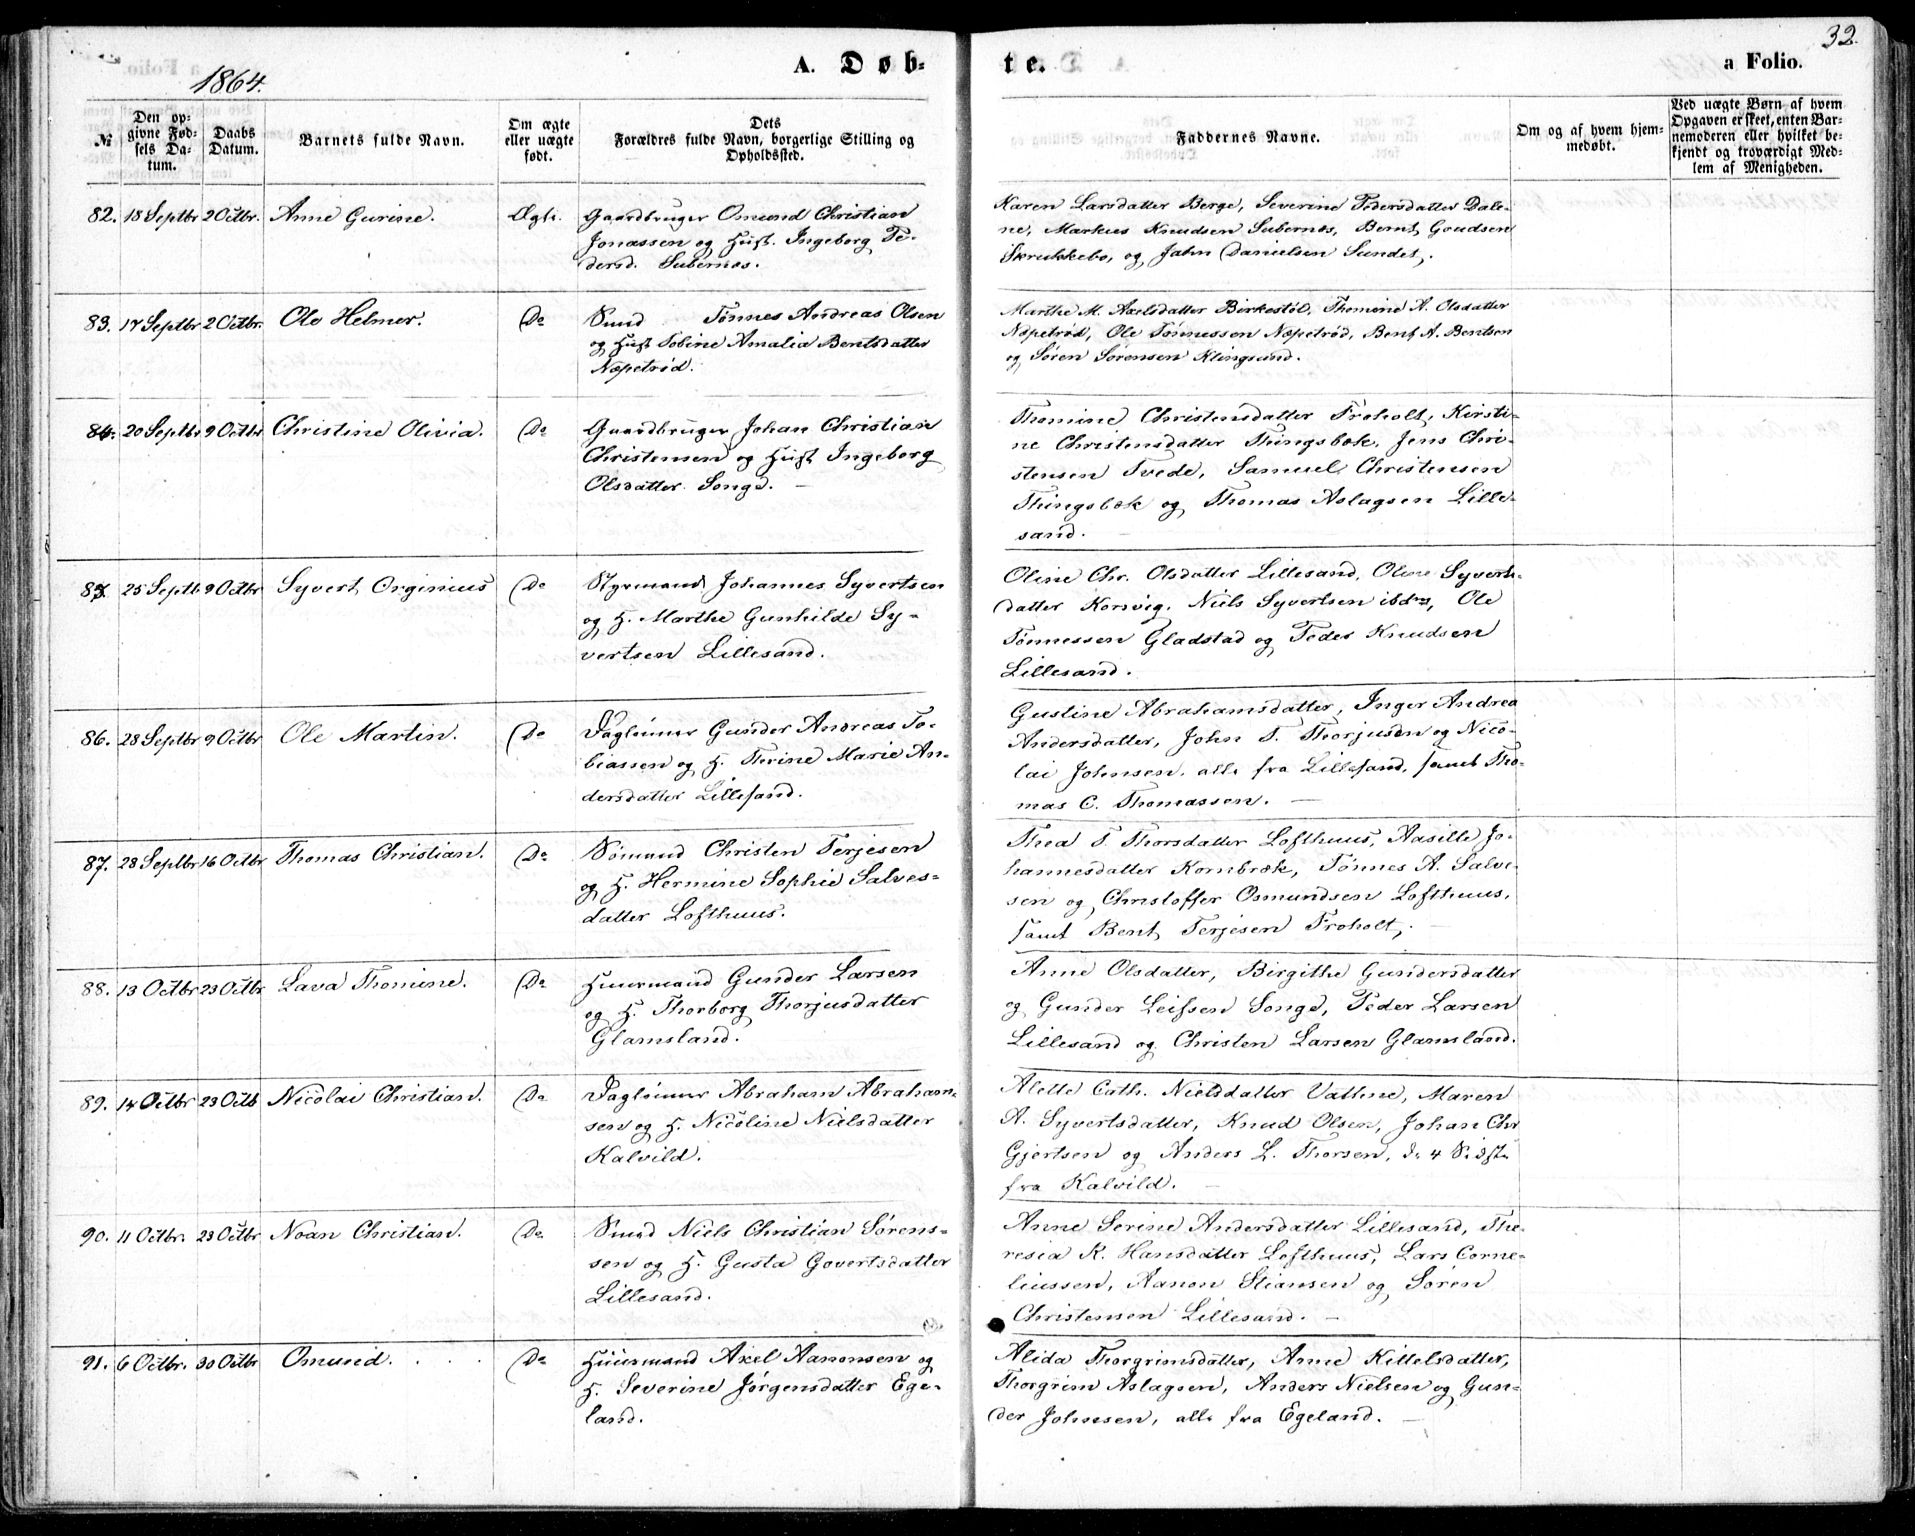 1864.
A. Døb-
te.
32
a Folio.
№
Den op-
givne Fød-
sels Da-
tum.
Daabs
Datum.
Barnets fulde Navn.
Om ægte
eller uægte
født.
Dets
Forældres fulde Navn, borgerlige Stilling og
Opholdssted.
Faddernes Navne.
Om og af hvem hjem-
medøbt.
Ved uægte Børn af hvem
Opgaven er skeet, enten Bar-
nemoderen eller hvilket be-
kjendt og troværdigt Med-
lem af Menigheden.
82. 18 Septbr 2 Octbr. Anne Gurine. Ægte.
Gaardbruger Omund Christian
Jonassen og Hust. Ingeborg Pe-
dersd. Subernes.
Karen Larsdatter Berge, Severine Pedersdatter Dale-
ne, Markus Knudsen Subernes, Bernt Goudsen
Skrukkebo, og Jahn Danielsen Sundet.
83. 17 Septbr 2 Octbr. Ole Helmer. Do
Smed Tønnes Andreas Olsen
og Hust Tobine Amalia Bentsdatter
Næpetrød.
Marthe M. Axelsdatter Birkestøl, Thomine A. Olsdatter
Næpetrød, Ole Tønnessen Næpetrød, Bent A. Bentsen
og Søren Sørensen Klingsund.
84. 20 Septbr 9 Octbr Christine Olivia. Do
Gaardbruger Johan Christian
Christensen og Hust Ingeborg
Olsdatter Songe. –
Thomine Christensdatter Froholt, Kirsti-
ne Christensdatter Thingsbæk, Jens Chri-
stensen Tvede, Samuel Christensen
Thingsbæk og Thomas Aslagsen Lille-
sand.
85. 25 Septb 9 Octbr Syvert Orginius Do
Styrmand Johannes Syvertsen
og H. Marthe Gunhilde Sy-
vertsen Lillesand.
Oline Chr. Olsdatter Lillesand, Oline Syverts-
datter Korsvig, Niels Syvertsen ibdm, Ole
Tønnessen Gladstad og Peder Knudsen
Lillesand.
86. 28 Septbr 9 Octbr Ole Martin. Do
Dagleiner Gunder Andreas To-
biassen og H. Therine Marie An-
dersdatter Lillesand.
Gustine Abrahamsdatter, Inger Andrea
Andersdatter, John T. Thorjusen og Nico-
lai Johnsen, alle fra Lillesand, samt Tho-
mas C. Thomassen. –
87. 28 Septbr 16 Octbr Thomas Christian. Do
Sømand Christen Terjesen
og H. Hermine Sophie Salves-
datter Lofthuus.
Thea T. Thorsdatter Lofthuus, Aasille Jo-
hannesdatter Kornbræk, Tønnes A. Salve-
sen og Christoffer Osmundsen Lofthuus,
samt Bent Terjesen Froholt. –
88. 13 Octbr 23 Octbr Lava Thomine. Do
Huusmand Gunder Larsen
og H. Thorborg Thorjusdatter
Glamsland.
Anne Olsdatter, Birgithe Gundersdatter
og Gunder Leifsen Songe, Peder Larsen
Lillesand og Christen Larsen Glamsland.
89. 14 Octbr 23 Octb Nicolai Christian. Do
Dagleiner Abraham Abraham-
sen og H. Nicoline Nielsdatter
Kalvild.
Alette Cath. Nielsdatter Vatne, Maren
A. Syvertsdatter, Knud Olsen, Johan Chr
Gjertsen og Anders L. Thorsen, de 4 Sidste
fra Kalvild. –
90. 11 Octbr. 23 Octbr Noan Christian. Do
Smed Niels Christian Sørens-
sen og H. Gusta Govertsdatter
Lillesand.
Anne Serine Andersdatter Lillesand, The-
resia K. Hansdatter Lofthuus, Lars Corne-
liussen, Aanon Stiansen og Søren
Christensen Lillesand. –
91. 6 Octbr. 30 Octbr Omund. . . . Do
Huusmand Axel Aanonsen og
H. Severine Jørgensdatter Ege-
land.
Alida Thorgrimsdatter, Anne Kittelsdatter,
Thorgrim Aslagsen, Anders Nielsen og Gun-
der Johnsen, alle fra Egeland. –